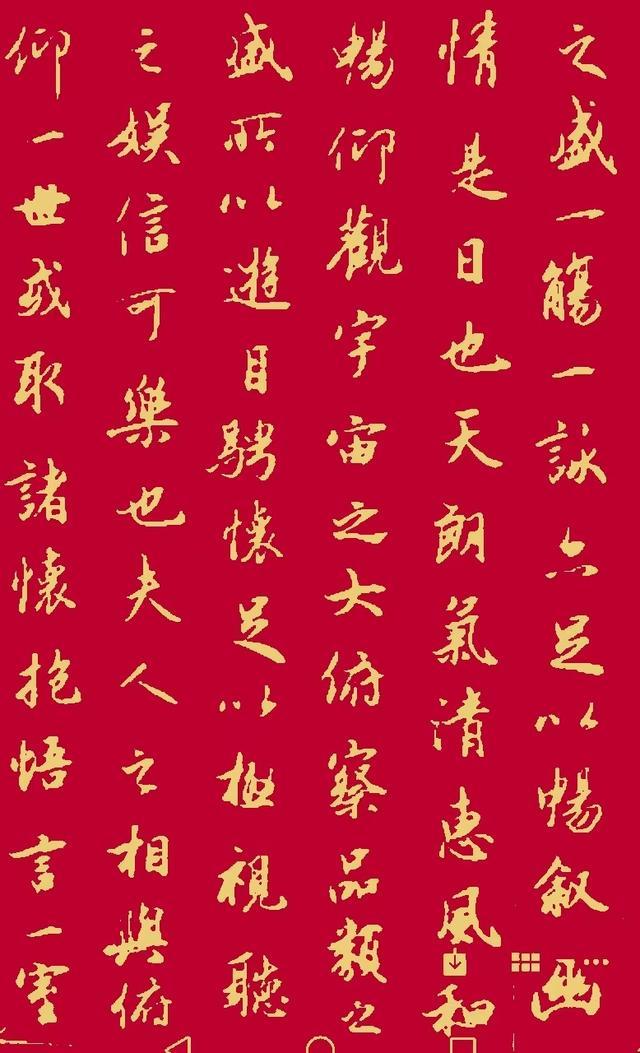 之盛一觴一詠亦足以暢敘幽
情是日也天朗氣清惠風和
暢仰觀宇宙之大俯察品類之
盛所以遊目騁懷足以極視聽
之娛信可樂也夫人之相與俯
仰一世或取諸懷抱悟言一室